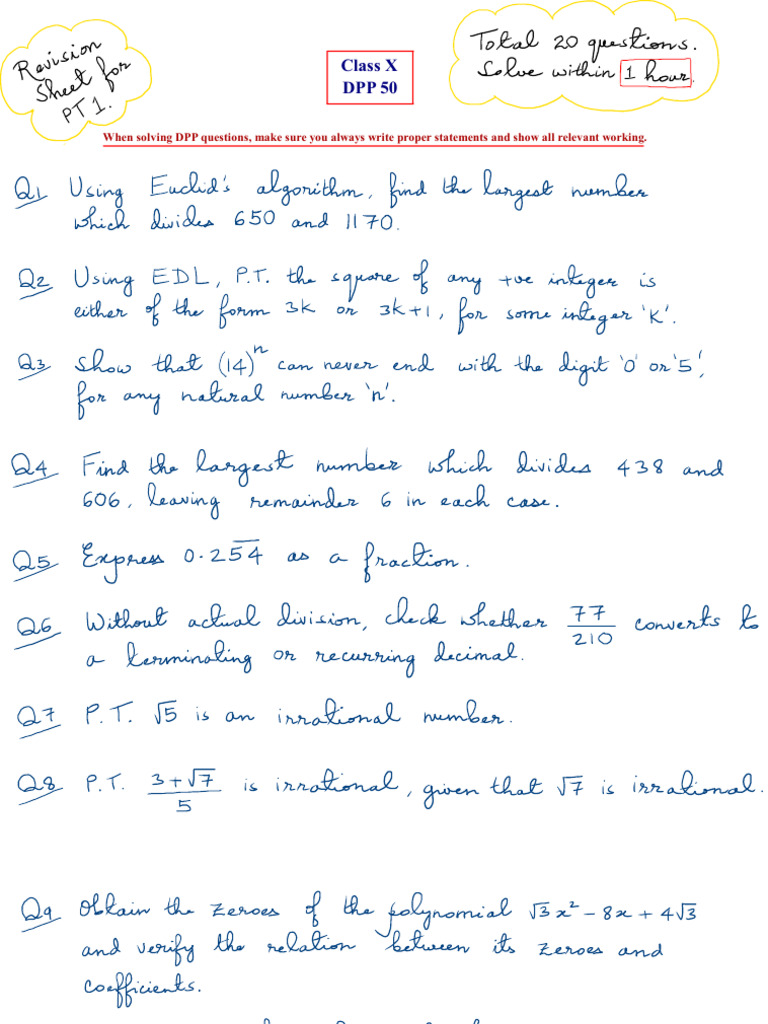 Revision
Sheet for
PT 1.
Class X
DPP 50
Total 20 questions.
Solve within 1 hour.
When solving DPP questions, make sure you always write proper statements and show all relevant working.
Q1 Using Euclid's algorithm, find the largest number
which divides 650 and 1170.
Q2 Using EDL, P.T. the square of any +ve integer is
either of the form 3k or 3k+1, for some integer 'K'.
Q3 Show that (14)ⁿ can never end with the digit '0' or '5',
for any natural number 'n'.
Q4 Find the largest number which divides 438 and
606, leaving remainder 6 in each case.
Q5 Express 0.25̅4̅ as a fraction.
Q6 Without actual division, check whether 77/210 converts to
a terminating or recurring decimal.
Q7 P.T. √5 is an irrational number.
Q8 P.T. (3+√7)/5 is irrational, given that √7 is irrational.
Q9 Obtain the zeroes of the polynomial √3x² - 8x + 4√3
and verify the relation between its zeroes and
coefficients.